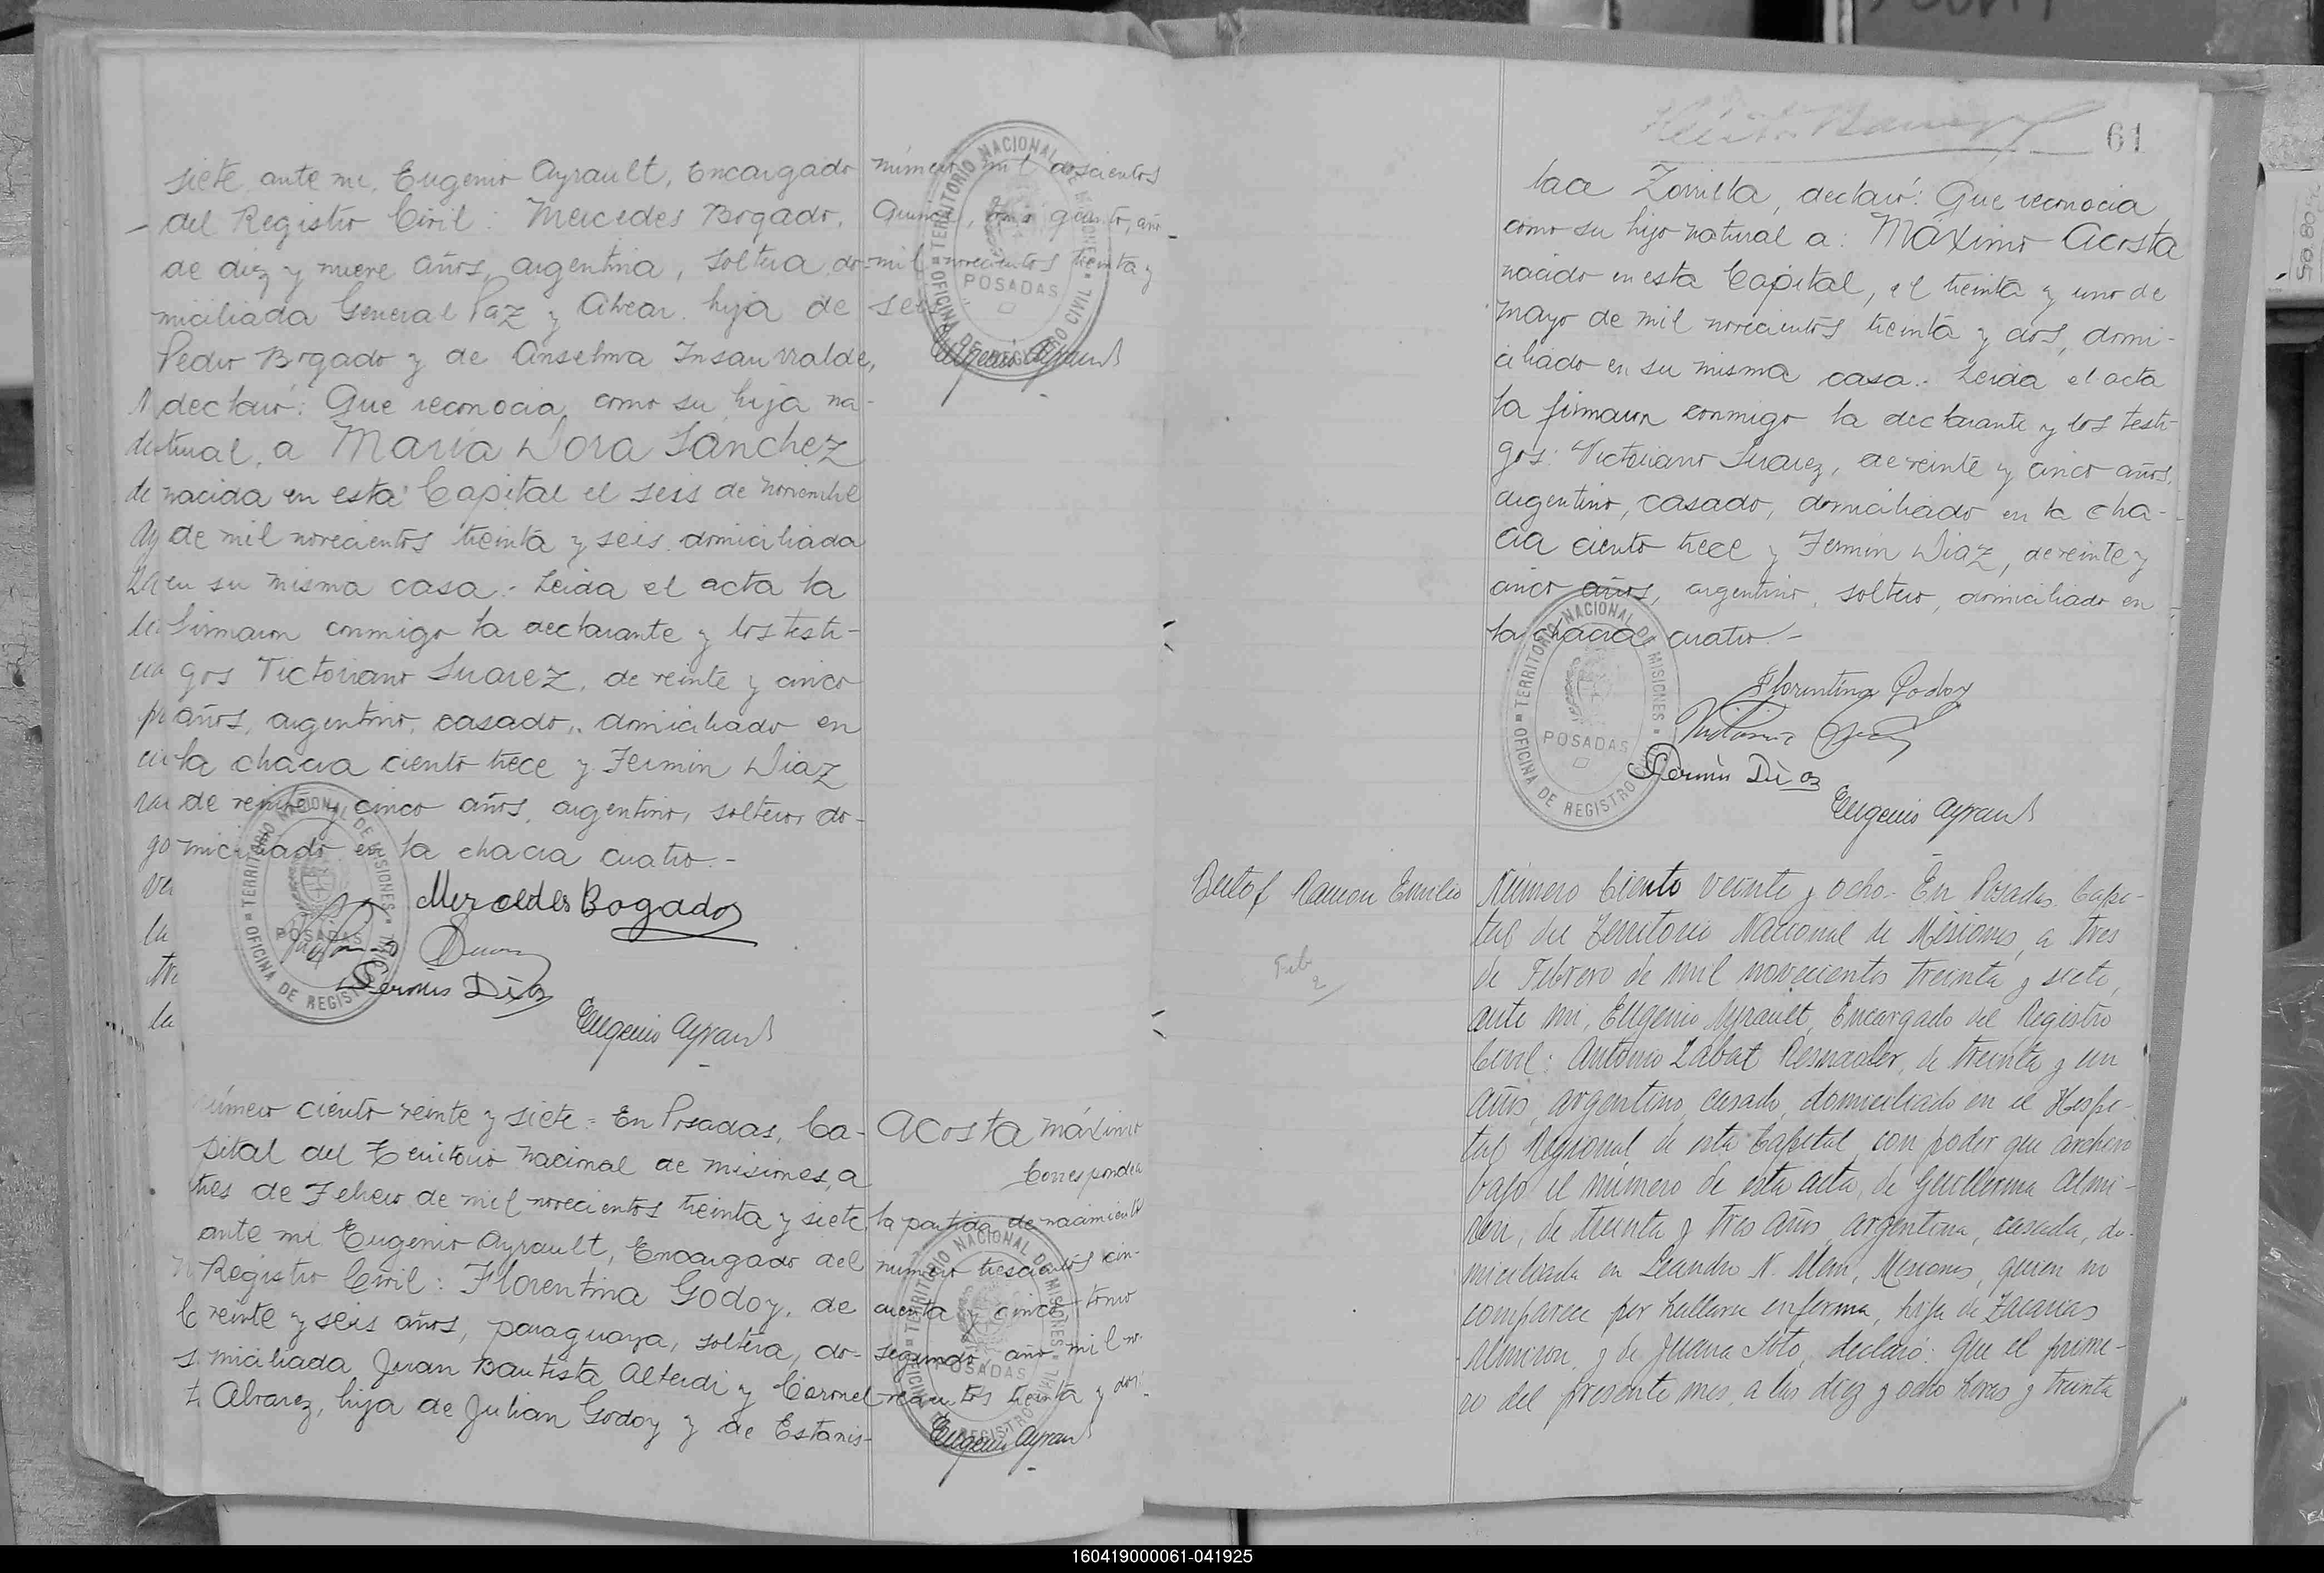 siete, ante mi, Eugenio Ayrault, Encargado
del Registro Civil: Mercedes Bogado,
de diez y nueve años, argentina, soltera, do-
miciliada General Paz y Alvear, hija de
Pedro Bogado y de Anselma Insaurralde,
declaró: Que reconocia como su hija na-
tural, a Maria Dora Sanchez
nacida en esta Capital el seis de noviembre
de mil novecientos treinta y seis, domiciliada
en su misma casa.- Leida el acta la
firmaron conmigo la declarante y los testi-
gos Victoriano Suarez, de veinte y cinco
años, argentino, casado, domiciliado en
la chacra ciento trece y Fermin Diaz
de veinte y cinco años, argentino, soltero, do-
miciliado en la chacra cuatro.-
Mercedes Bogado
Fermin Diaz
Eugenio Ayrault
TERRITORIO NACIONAL DE MISIONES
POSADAS
OFICINA DE REGISTRO CIVIL
número mil doscientos
quince, tomo cuarto, año
mil novecientos treinta y
seis
Eugenio Ayrault
TERRITORIO NACIONAL DE MISIONES
POSADAS
OFICINA DE REGISTRO CIVIL
Número ciento veinte y siete = En Posadas, Ca-
pital del Territorio Nacional de Misiones, a
tres de Febrero de mil novecientos treinta y siete
ante mi Eugenio Ayrault, Encargado del
Registro Civil: Florentina Godoy, de
veinte y seis años, paraguaya, soltera, do-
miciliada Juan Bautista Alberdi y Coronel
Alvarez, hija de Julian Godoy y de Estanis-
Acosta Máximo
Corresponde a
la partida de nacimiento
numero trescientos cin-
cuenta y cinco tomo
segundo, año mil no-
vecientos treinta y dos.
Eugenio Ayrault
TERRITORIO NACIONAL DE MISIONES
POSADAS
OFICINA DE REGISTRO CIVIL
61
laa Zorrilla, declaró: Que reconocia
como su hijo natural a: Máximo Acosta
nacido en esta Capital, el treinta y uno de
mayo de mil novecientos treinta y dos, domi-
ciliado en su misma casa.- Leida el acta
la firmaron conmigo la declarante y los testi-
gos: Victoriano Suarez, de veinte y cinco años,
argentino, casado, domiciliado en la cha-
cra ciento trece y Fermin Diaz, de veinte y
cinco años, argentino, soltero, domiciliado en
la chacra cuatro.-
Florentina Godoy
Fermin Diaz
Eugenio Ayrault
TERRITORIO NACIONAL DE MISIONES
POSADAS
OFICINA DE REGISTRO CIVIL
Ramon Emilio
Feb
2
Número Ciento veinte y ocho.- En Posadas, Capi-
tal del Territorio Nacional de Misiones, a tres
de Febrero de mil novecientos treinta y siete,
ante mi, Eugenio Ayrault, Encargado del Registro
Civil: Antonio Zabat, de treinta y un
años, argentino, casado, domiciliado en el Hospi-
tal Regional de esta Capital, con poder que archivo
bajo el número de esta acta, de Guillerma Almi-
ron, de treinta y tres años, argentina, casada, do-
miciliada en Leandro N. Alem, Misiones, quien no
comparece por hallarse enferma, hija de Zacarias
Almiron, y de Juana Soto, declaró: Que el prime-
ro del presente mes, a las diez y ocho horas y treinta
160419000061-041925